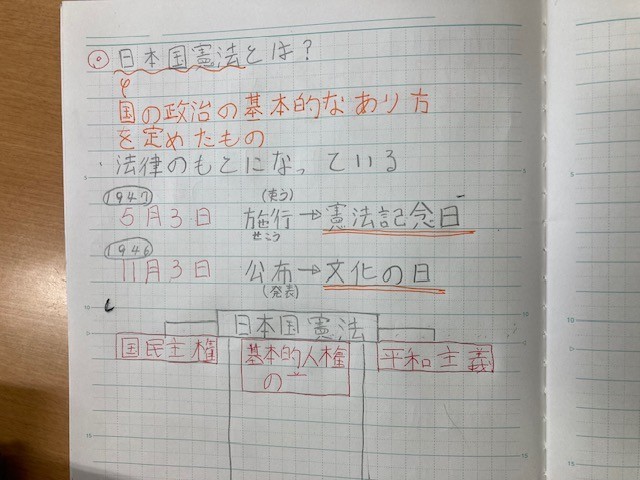 日本国憲法とは?
国の政治の基本的なあり方
を定めたもの
法律のもとになっている
1947
(使う)
5月3日 施行→憲法記念日
せこう
1946
11月3日 公布→文化の日
(発表)
日本国憲法
国民主権
基本的人権
の
平和主義